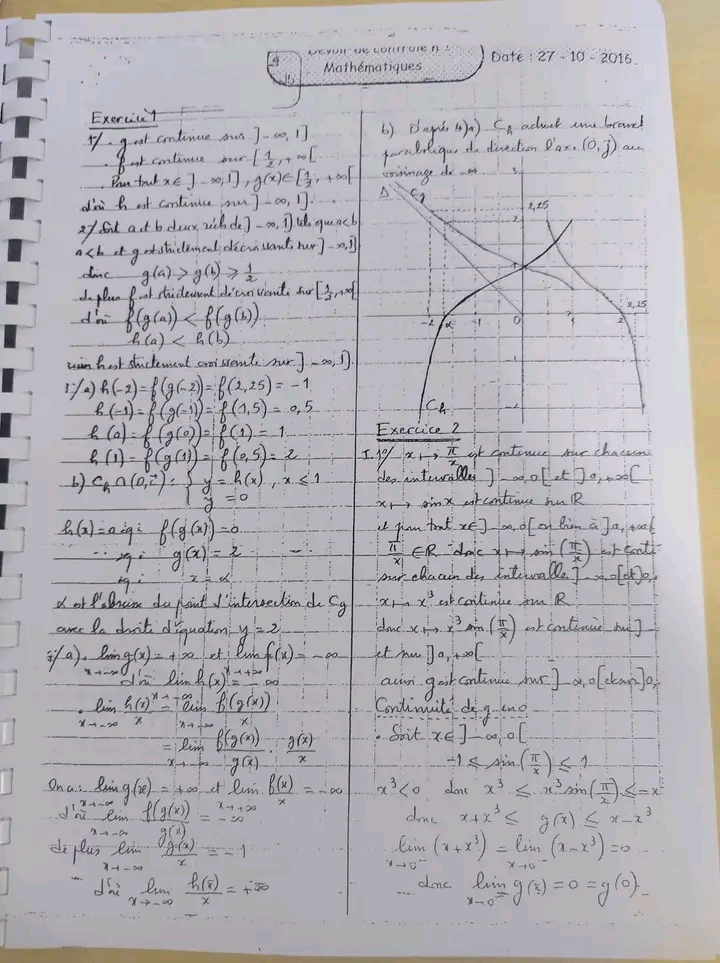 Devoir de contrôle n
Mathématiques
Date : 27 - 10 - 2016
Exercice 1
1°/ . g est continue sur ]-∞, 1]
. f est continue sur [1/2, +∞[
. Pour tout x∈]-∞, 1], g(x)∈[1/2, +∞[
d'où h est continue sur ]-∞, 1].
2°/ Soit a et b deux réels de ]-∞, 1] tels que a<b
a<b et g est strictement décroissante sur ]-∞, 1]
donc g(a) > g(b) ≥ 1/2
de plus f est strictement décroissante sur [1/2, +∞[
d'où f(g(a)) < f(g(b))
h(a) < h(b)
h est strictement croissante sur ]-∞, 1].
3°/ a) h(-2) = f(g(-2)) = f(2,25) = -1
h(-1) = f(g(-1)) = f(1,5) = 0,5
h(0) = f(g(0)) = f(1) = 1
h(1) = f(g(1)) = f(0,5) = 2
b) Ch ∩ (O, i) = { y = h(x), x ≤ 1
y = 0
h(x) = 0 sig: f(g(x)) = 0
sig: g(x) = 2
sig: x = α
α est l'abscisse du point d'intersection de Cg
avec la droite d'équation y = 2
a) . lim g(x) = +∞ et lim f(x) = -∞
x→-∞ x→+∞
d'où lim h(x) = -∞
x→-∞
. lim h(x)/x = lim f(g(x))/x
x→-∞ x→-∞
= lim f(g(x))/g(x) . g(x)/x
x→-∞
On a : lim g(x) = +∞ et lim f(x)/x = -∞
x→-∞ x→+∞
d'où lim f(g(x))/g(x) = -∞
x→-∞
de plus lim g(x)/x = -1
x→-∞
d'où lim h(x)/x = +∞
x→-∞
b) D'après 4) a) Ch admet une branche
parabolique de direction l'axe (O, j) au
voisinage de -∞
Δ Cg
2,25
2
1
-2 α -1 0 1 2 2,25
Ch
Exercice 2
I. 1°/ x ↦ π/x est continue sur chacun
des intervalles ]-∞, 0[ et ]0, +∞[
x ↦ sin x est continue sur ℝ
et pour tout x∈]-∞, 0[ ou bien à ]0, +∞[
π/x ∈ ℝ donc x ↦ sin(π/x) est conti
sur chacun des intervalles ]-∞, 0[ et ]0,
x ↦ x³ est continue sur ℝ
donc x ↦ x³ sin(π/x) est continue sur ]-
et sur ]0, +∞[
ainsi g est continue sur ]-∞, 0[ et sur ]0,
Continuité de g en 0
. Soit x∈]-∞, 0[
-1 ≤ sin(π/x) ≤ 1
x³<0 donc x³ ≤ x³ sin(π/x) ≤ -x
donc x+x³ ≤ g(x) ≤ x-x³
lim (x+x³) = lim (x-x³) = 0
x→0⁻ x→0⁻
donc lim g(x) = 0 = g(0)
x→0⁻